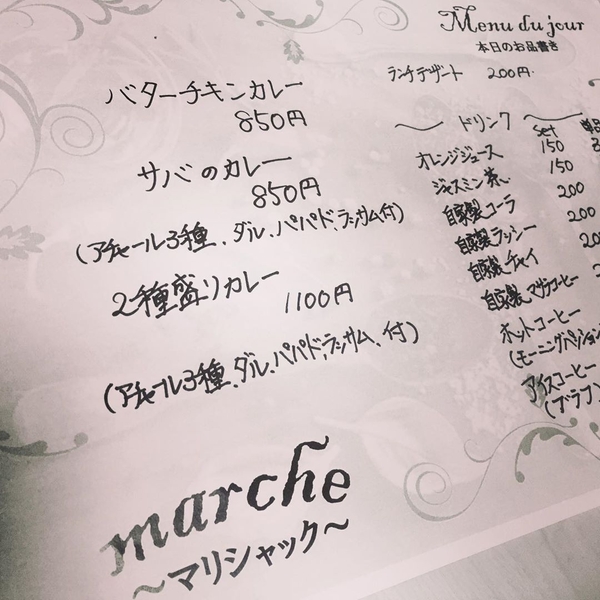 Menu du jour
本日のお品書き
ランチデザート 200円.
バターチキンカレー
850円
サバのカレー
850円
(アチャール3種、ダル、パパド、ラッサム付)
2種盛りカレー
1100円
(アチャール3種、ダル、パパド、ラッサム、付)
〜 ドリンク 〜
set 単品
オレンジジュース 150
ジャスミン茶 150
自家製コーラ 200
自家製ラッシー 200
自家製チャイ
自家製マサラコーヒー
ホットコーヒー
(モーニングベーション
アイスコーヒー
marche
〜マリシャック〜